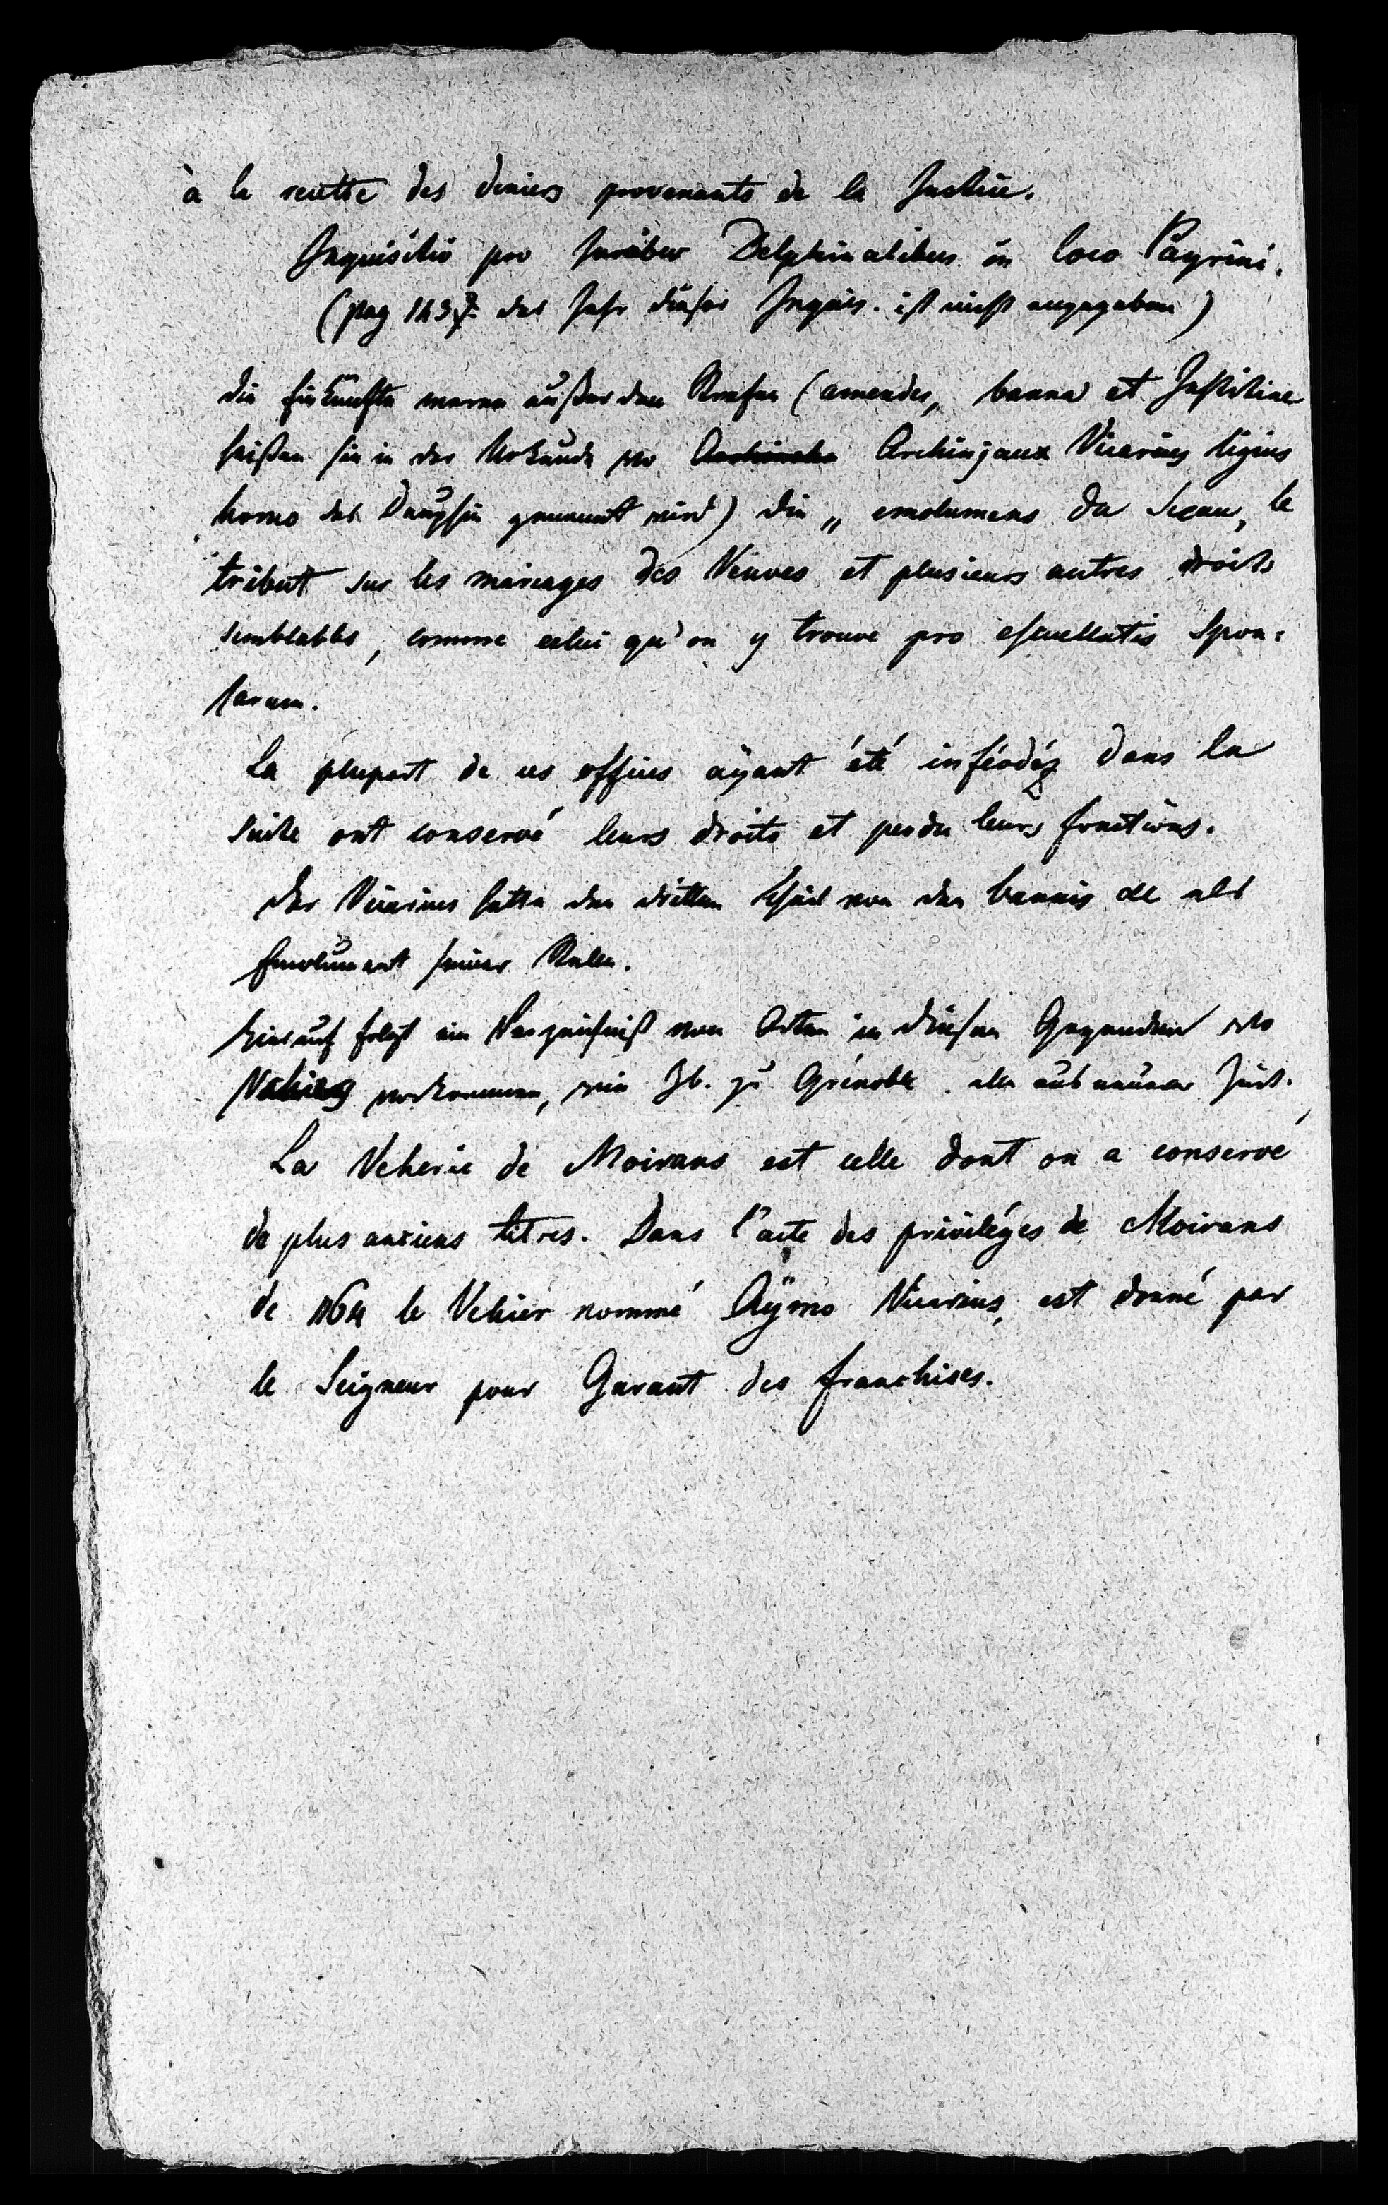 à la recette des deniers provenants de la Justice.
Inquisitio pro Juribus Delphinalibus in loco Payrini.
(pag 143. das Jahr dieser Inquis. ist nicht angegeben)
die Einkünfte waren außer den Strafen (amendes, banna et Justitiae
heißen sie in der Urkunde wo Archinjaux Vicarius ligius
homo des Dauphin genannt wird) die „ emolumens du Sceau, le
tribut sur les mariages des Veuves et plusieurs autres droits
semblables, comme celui qu'on y trouve pro escuellatis Spon-
sarum.
La plupart de ces offices ayant été inféodéz dans la
suite ont conservé leurs droits et perdu leurs fonctions.
der Vicarius hatte den dritten Theil von den bannis als
Emolument seiner Stelle.
hierauf folgt ein Verzeichniß von Orten in diesen Gegenden wo
Vehiers vorkommen, wie Zb. zu Grénoble. alle aus neuerer Zeit.
La Veherie de Moirans est celle dont on a conservé
de plus anciens titres. Dans l'acte des priviléges de Moirans
de 1164 le Vehier nommé Aÿmo Vicarius, est donné par
le Seigneur pour Garant des franchises.